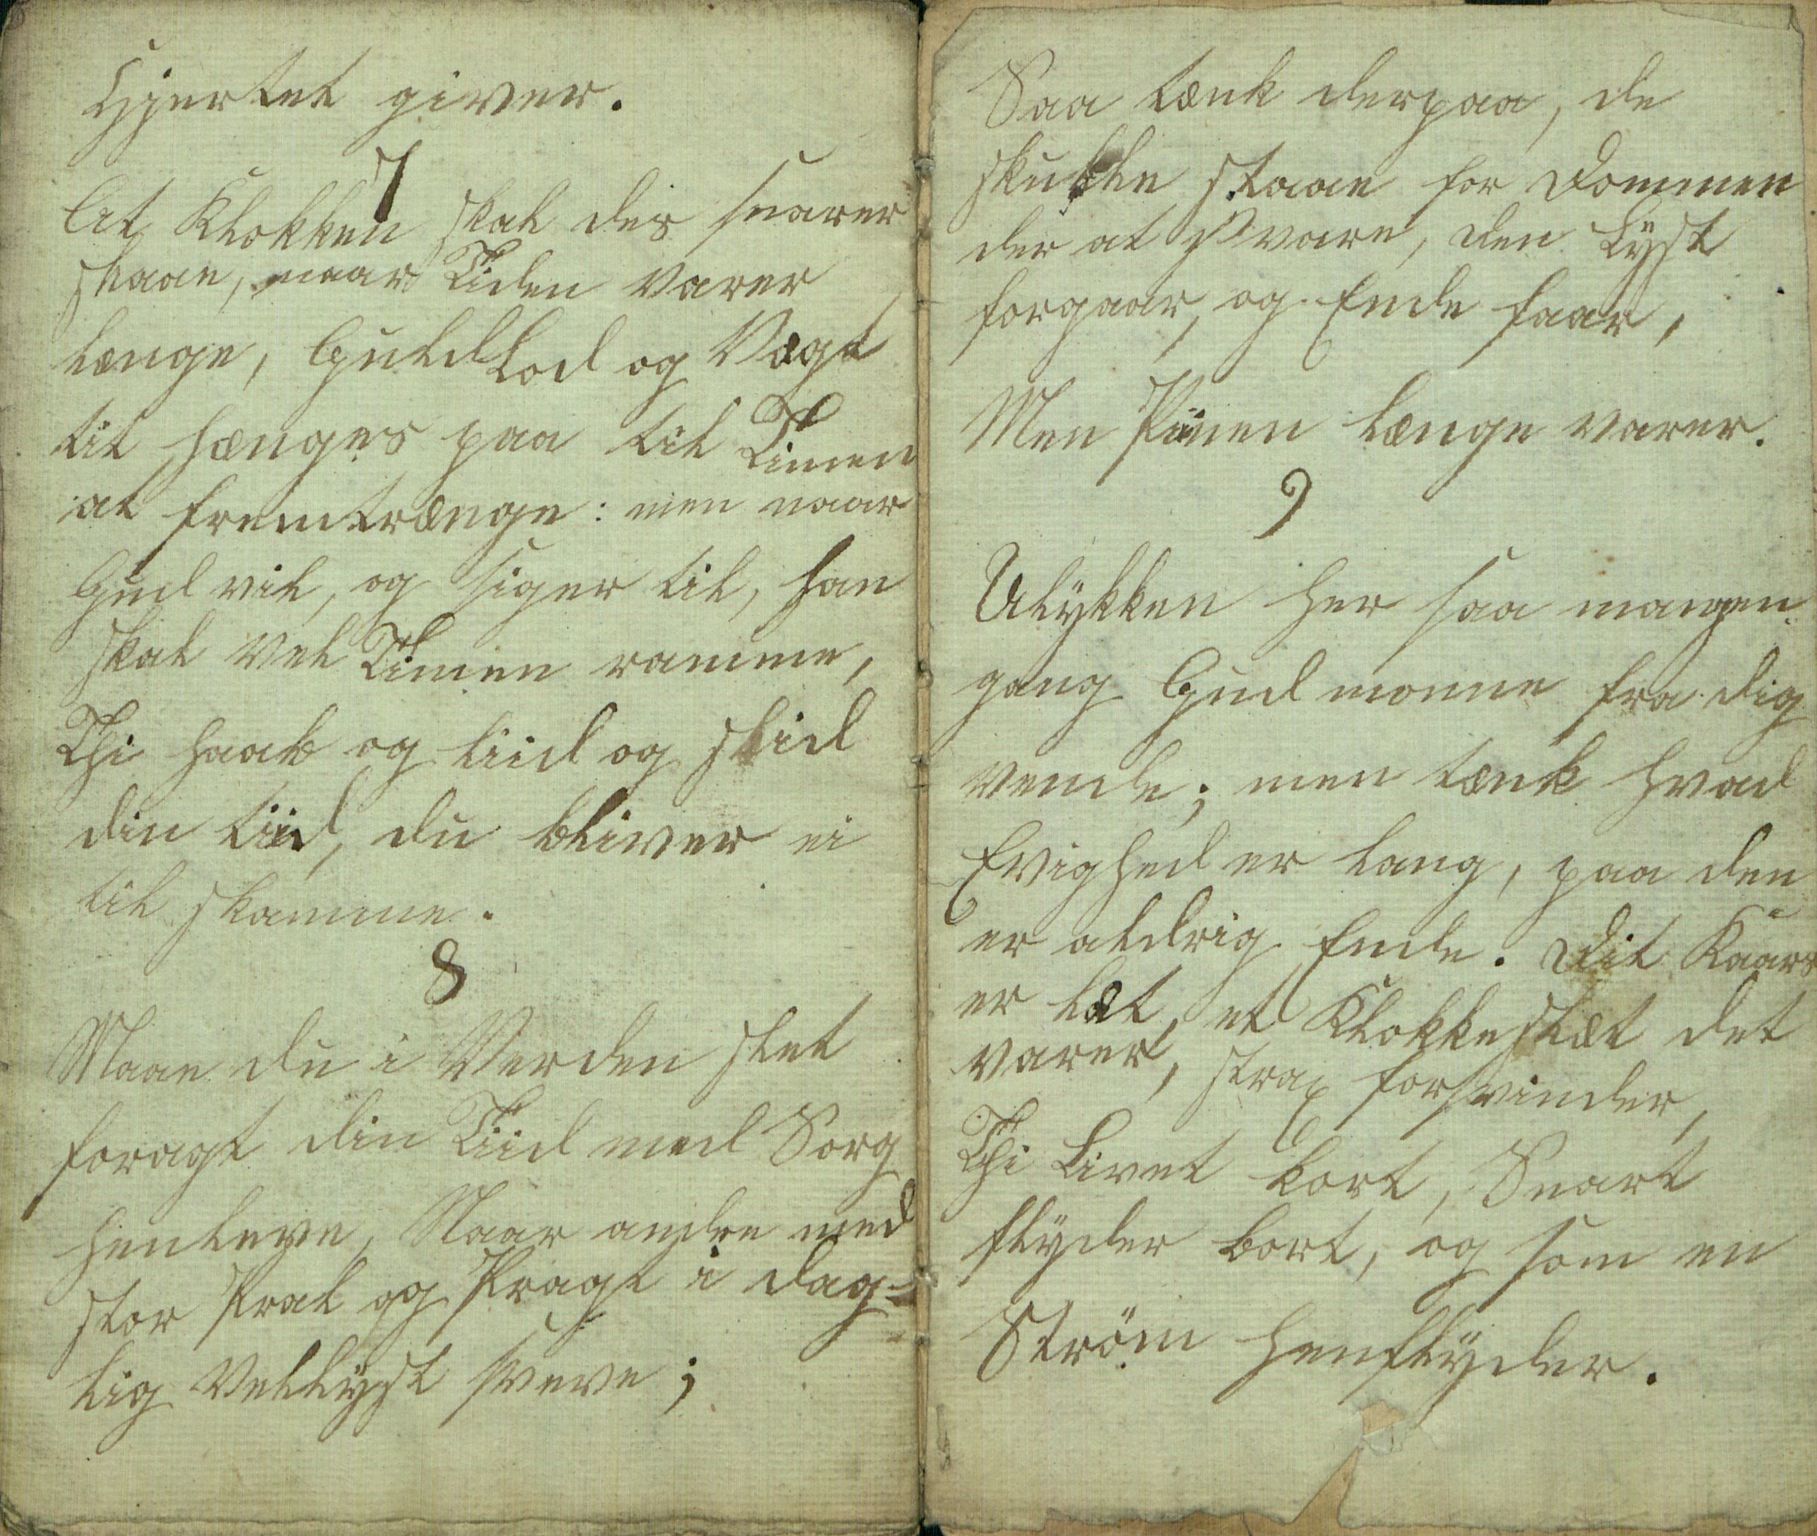 Hjertet giver.
7
At Klokken skal des snarer
slaae, naar Tiden varer
længe, Guld Lod og Vægt
til hænges paa til Timen
at fremtrænge: men naar
Gud vil, og siger til, han
skal vel Timen ramme,
Thi haab og liid og slid
din tiid, du bliver ei
til skamme.
8
Maae du i Verden slet
foragt din Tiid med Sorg
henleve, Naar andre med
stor Pral og Pragt i dag-
lig Vellyst sveve;
Saa tænk derpaa, de
skulle staae for Dommen
der at svare, den Lyst
forgaar, og Ende faar,
Men Pinen længe varer.
9
Ulykken her saa mangen
gang Gud monne fra dig
vende; men tænk hvad
Evighed er lang, paa den
er aldrig Ende. Dit Kaars
er læt, et Klokkeslæt det
varer, strax forsvinder,
Thi Livet kort, Snart
flyder bort, og som en
Strøm henflyder.